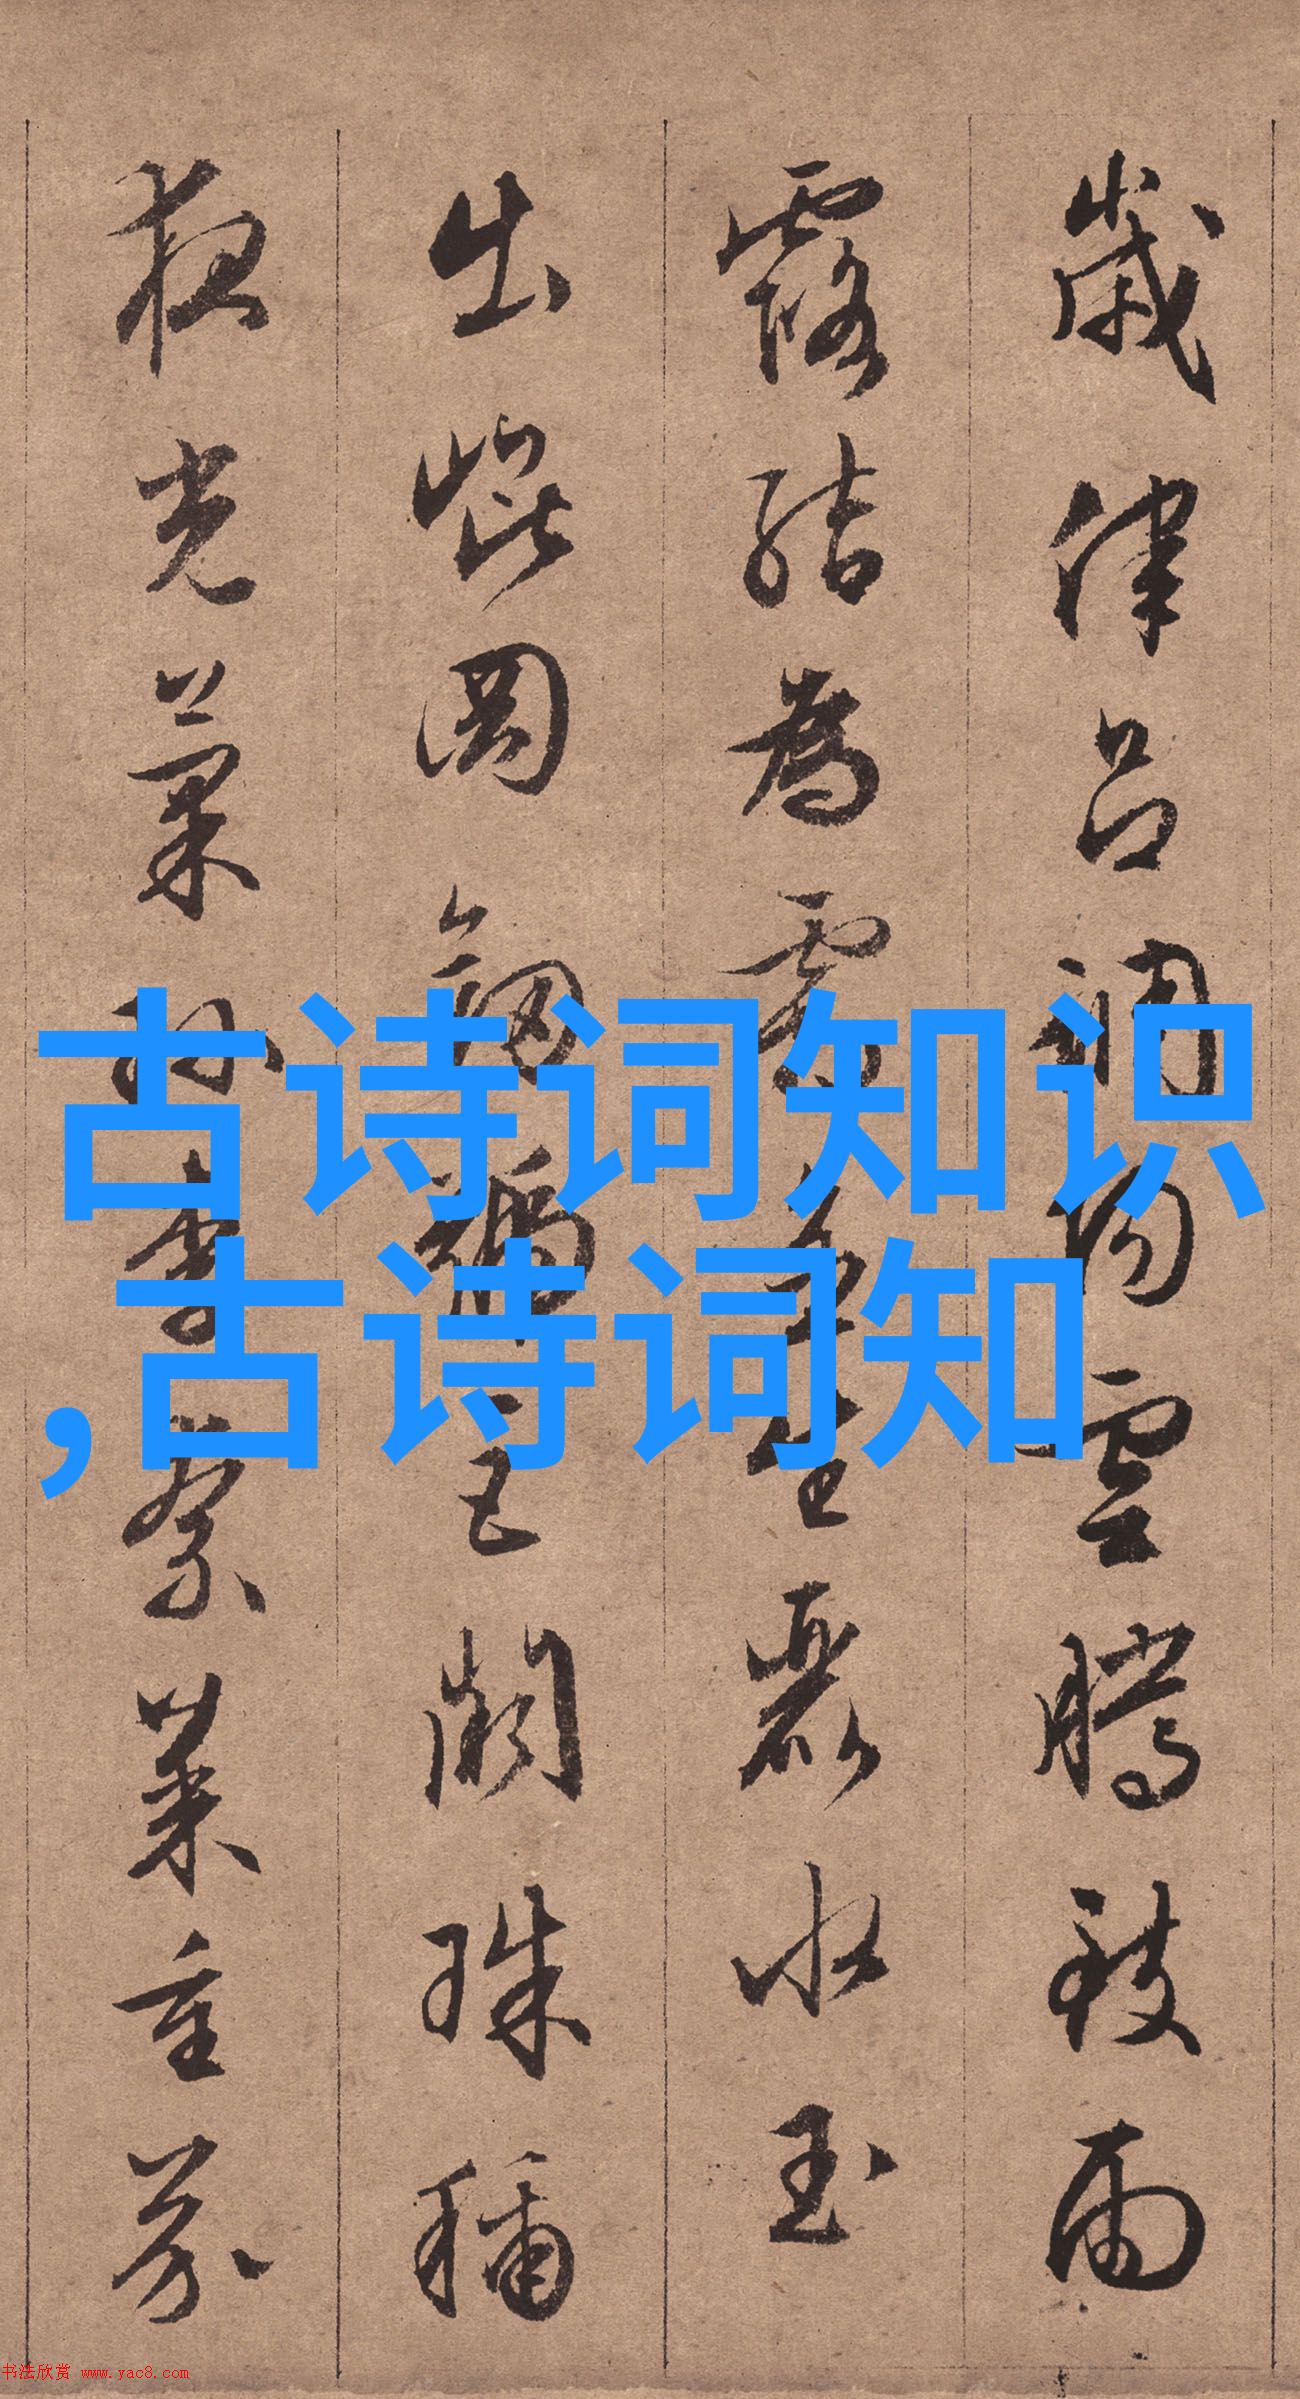 歲律呂調陽雲騰致雨
露結為霜金生麗水玉
出崐岡劒號巨闕珠稱
夜光菓珎李柰菜重芥
古诗词知识
,古诗词知
书法欣赏 www.yac8.com